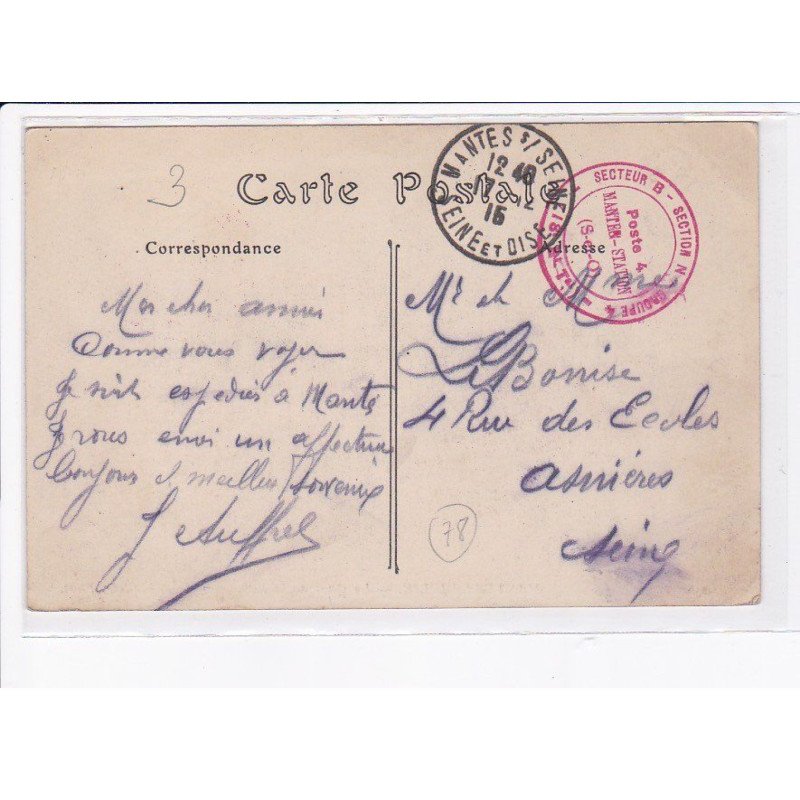 3
Carte Postale
MANTES s/ SEINE
12 40
17 - 12
15
SEINE ET OISE
SECTEUR B - SECTION N
GROUPE 4
Poste 4.
MANTES-STATION
(S.-&-O)
Correspondance
Adresse
Mes cher amis
Comme vous voyer
Je suis expedier à Mantes
Je vous envoi un affectueux
bonjour et meilleur souvenir
J Auffret
Mr et Mme
Le Bonise
4 Rue des Ecoles
Asnières
Seine
78